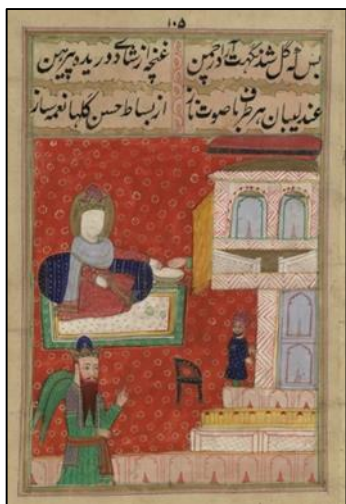 ١٠٥
بس که گل شد نکهت آرا در چمن
غنچه از شادی دریده پیرهن
عندلیبان هر طرف با صوت ناز
از بساط حسن گلها نغمه ساز